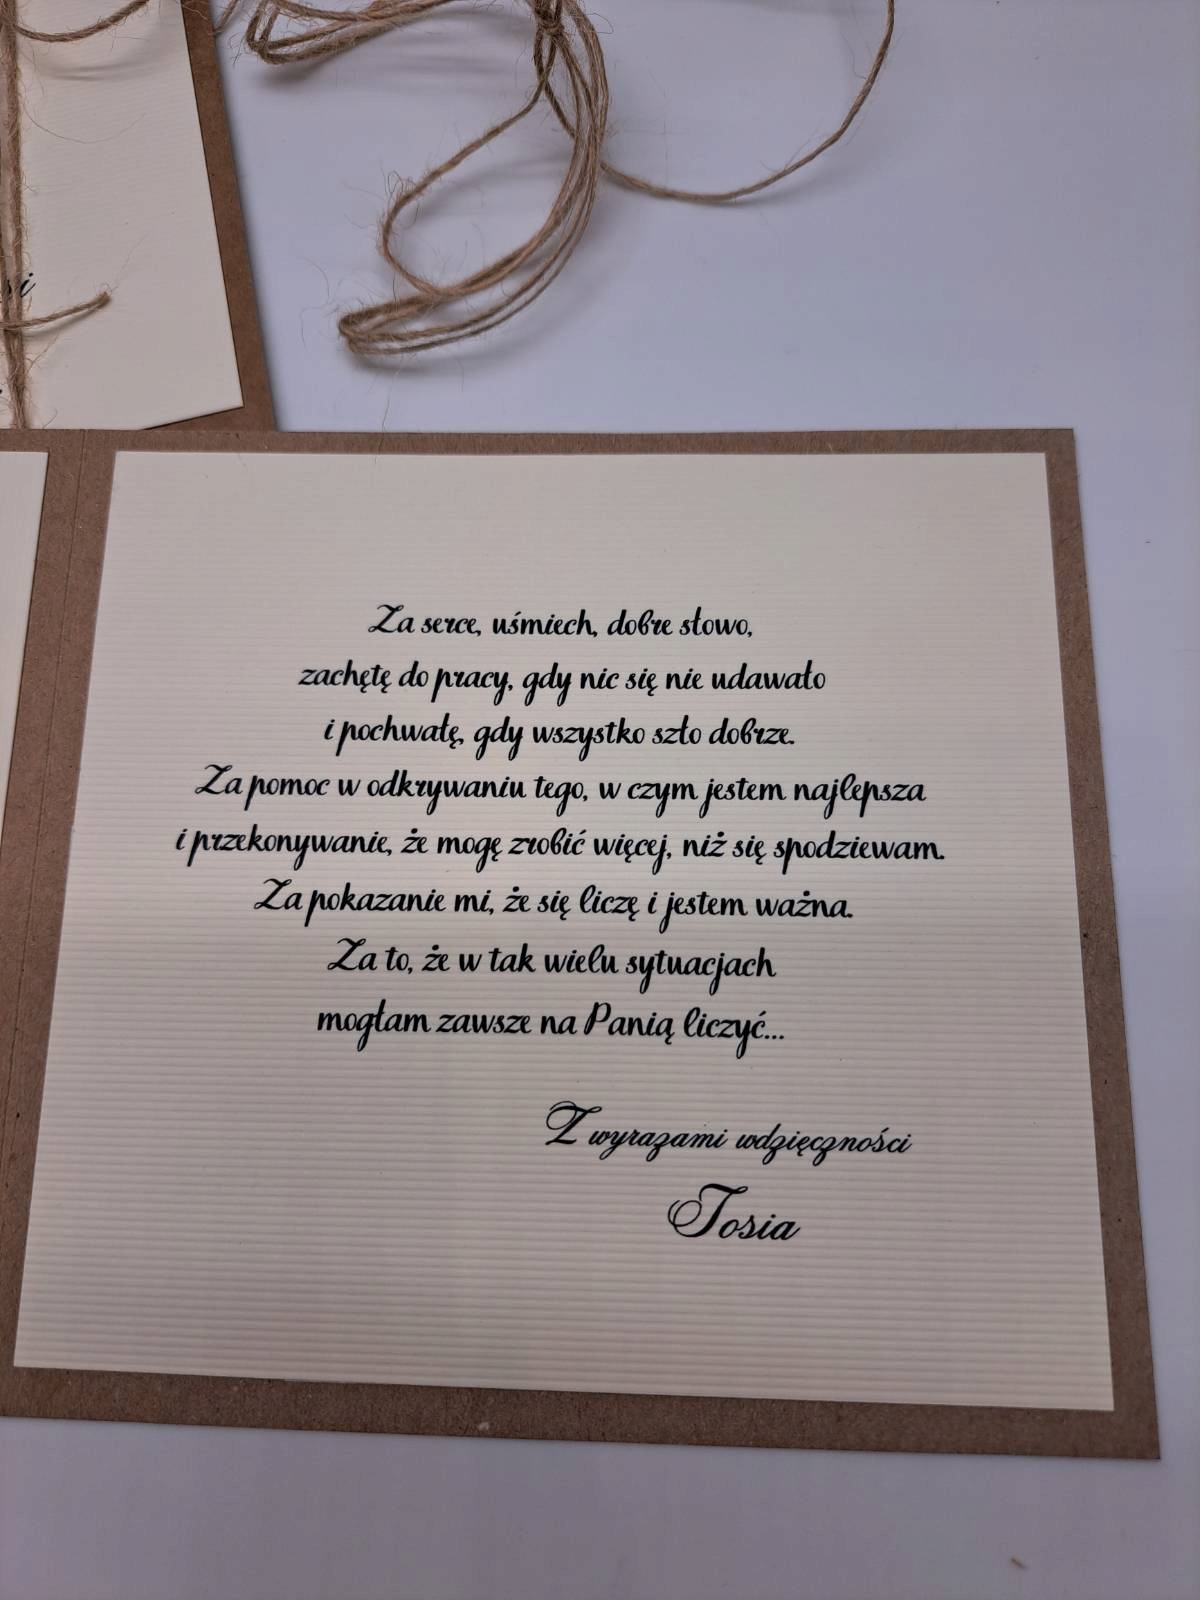 Za serce, uśmiech, dobre słowo,
zachętę do pracy, gdy nic się nie udawało
i pochwałę, gdy wszystko szło dobrze.
Za pomoc w odkrywaniu tego, w czym jestem najlepsza
i przekonywanie, że mogę zrobić więcej, niż się spodziewam.
Za pokazanie mi, że się liczę i jestem ważna.
Za to, że w tak wielu sytuacjach
mogłam zawsze na Panią liczyć...
Z wyrazami wdzięczności
Tosia